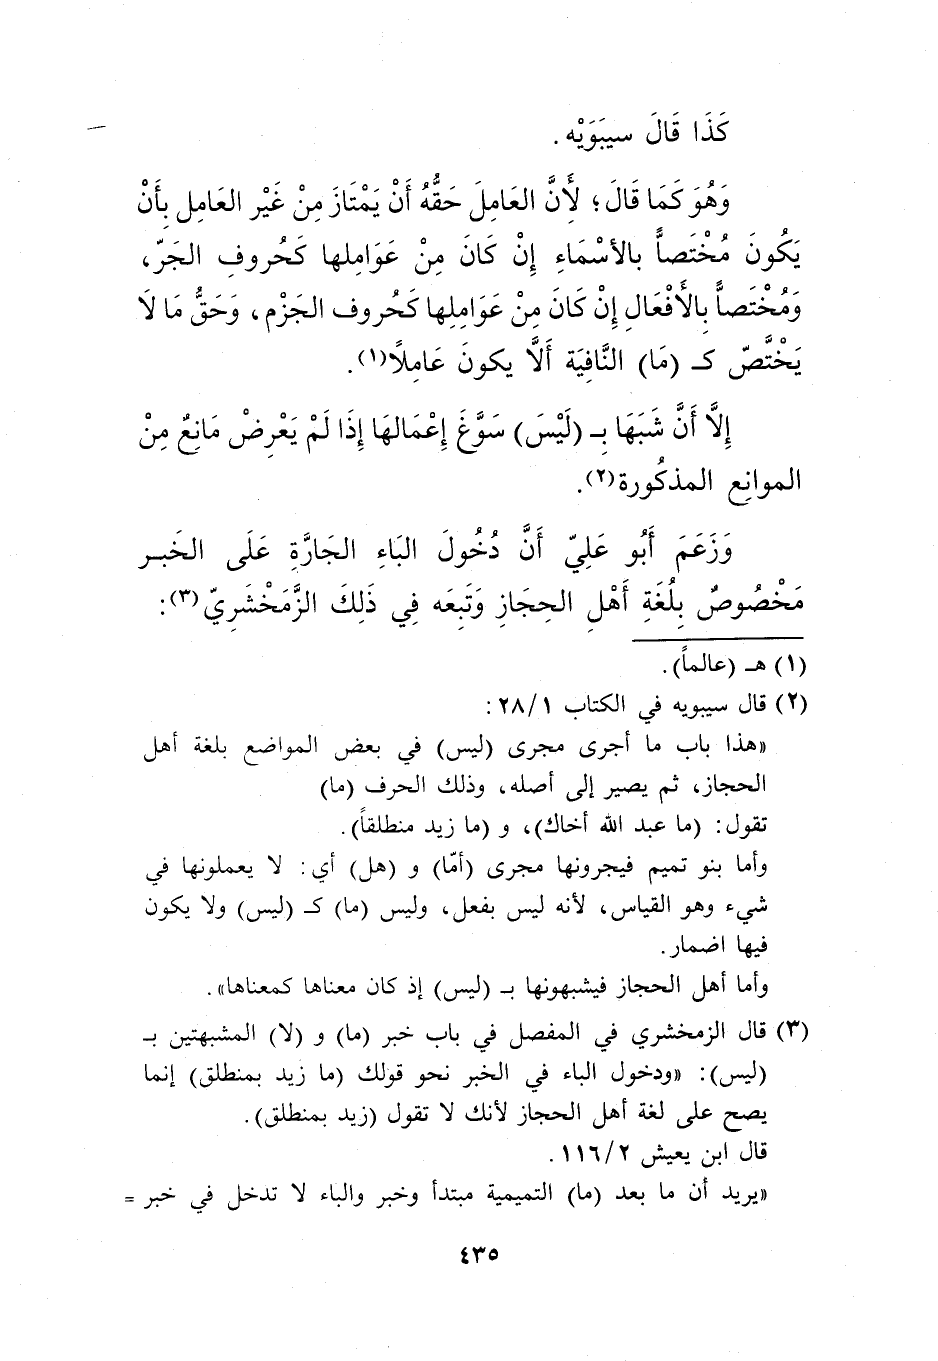 كَذَا قَالَ سيبَوَيْه .
وَهُوَ كَمَا قَالَ؛ لِأَنَّ العَامِلَ حَقُّهُ أَنْ يَمْتَازَ مِنْ غَيْر العَامِلِ بِأَنْ
يَكُونَ مُخْتَصاً بالأسْمَاءِ إِنْ كَانَ مِنْ عَوَامِلها كَحُروفِ الجَرّ،
وَمُخْتَصاً بِالأَفْعَالِ إِنْ كَانَ مِنْ عَوَامِلِها كَحُروف الجَزْمِ، وَحَقُّ مَا لَا
يَخْتَصّ كـ (مَا) النَّافِيَة أَلَّا يكونَ عَامِلًا(١).
إِلَّا أَنَّ شَبَهَا بِـ (لَيْسَ) سَوَّغَ إِعْمَالَهَا إِذَا لَمْ يَعْرِضْ مَانِعٌ مِنْ
الموانِع المذكُورة(٢).
وَزَعَمَ أَبُو عَلِيّ أَنَّ دُخُولَ البَاءِ الجَارَّةِ عَلَى الخَبـر
مَخْصُوصٌ بِلُغَةِ أَهْلِ الحِجَازِ وَتَبِعَه فِي ذَلِكَ الزَّمَخْشَرِيّ(٣):
(١) هـ (عالماً).
(٢) قال سيبويه في الكتاب ٢٨/١ :
«هذا باب ما أجرى مجرى (ليس) في بعض المواضع بلغة أهل
الحجاز، ثم يصير إلى أصله، وذلك الحرف (ما)
تقول: (ما عبد الله أخاك)، و (ما زيد منطلقاً).
وأما بنو تميم فيجرونها مجرى (أمّا) و (هل) أي: لا يعملونها في
شيء وهو القياس، لأنه ليس بفعل، وليس (ما) كـ (ليس) ولا يكون
فيها اضمار.
وأما أهل الحجاز فيشبهونها بـ (ليس) إذ كان معناها كمعناها».
(٣) قال الزمخشري في المفصل في باب خبر (ما) و (لا) المشبهتين بـ
(ليس): «ودخول الباء في الخبر نحو قولك (ما زيد بمنطلق) إنما
يصح على لغة أهل الحجاز لأنك لا تقول (زيد بمنطلق).
قال ابن يعيش ١١٦/٢ .
«يريد أن ما بعد (ما) التميمية مبتدأ وخبر والباء لا تدخل في خبر =
٤٣٥